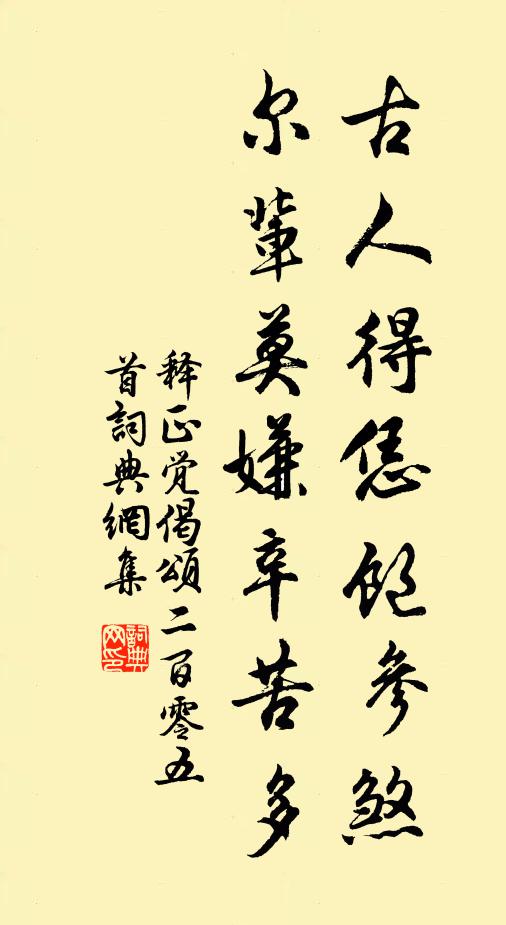 古人得恁飽參煞
尔輩莫嫌辛苦多
释正觉偈頌二百零五
首詞典網集
詞典
网印